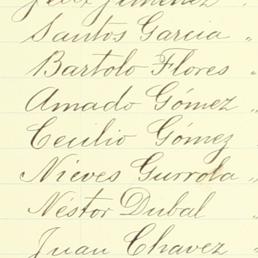 Félix Jiménez "
Santos Garcia "
Bartolo Flores "
Amado Gómez "
Cecilio Gómez "
Nieves Gurrola "
Néstor Dubal "
Juan Chavez "